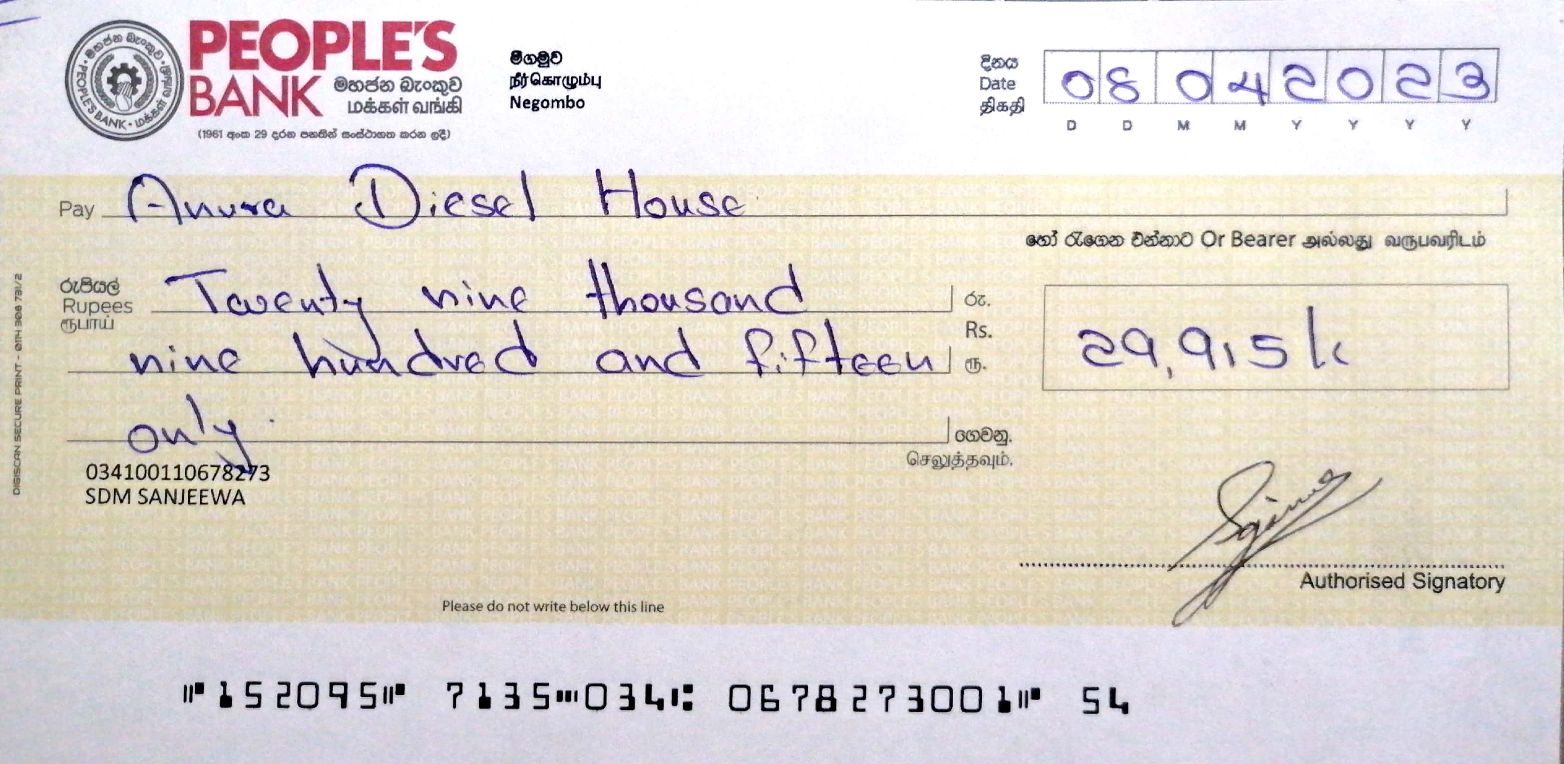 PEOPLE'S
BANK මහජන බැංකුව
மக்கள் வங்கி
(1961 අංක 29 දරන පනතින් සංස්ථාගත කරන ලදී)
මහජන බැංකුව • மக்கள் வங்கி • PEOPLE'S BANK •
මීගමුව
நீர்கொழும்பு
Negombo
දිනය
Date
திகதி
0 8 0 4 2 0 2 3
D D M M Y Y Y Y
Pay Anura Diesel House
හෝ රැගෙන එන්නාට Or Bearer அல்லது வருபவரிடம்
රුපියල්
Rupees
ரூபாய்
Twenty nine thousand
nine hundred and fifteen
only
රු.
Rs.
ரூ.
29,915/
ගෙවනු.
செலுத்தவும்.
034100110678273
SDM SANJEEWA
Authorised Signatory
Please do not write below this line
DIGISCAN SECURE PRINT - 0114 308 731/2
⑈152095⑈ 7135⑉034⑆ 0678273001⑈ 54